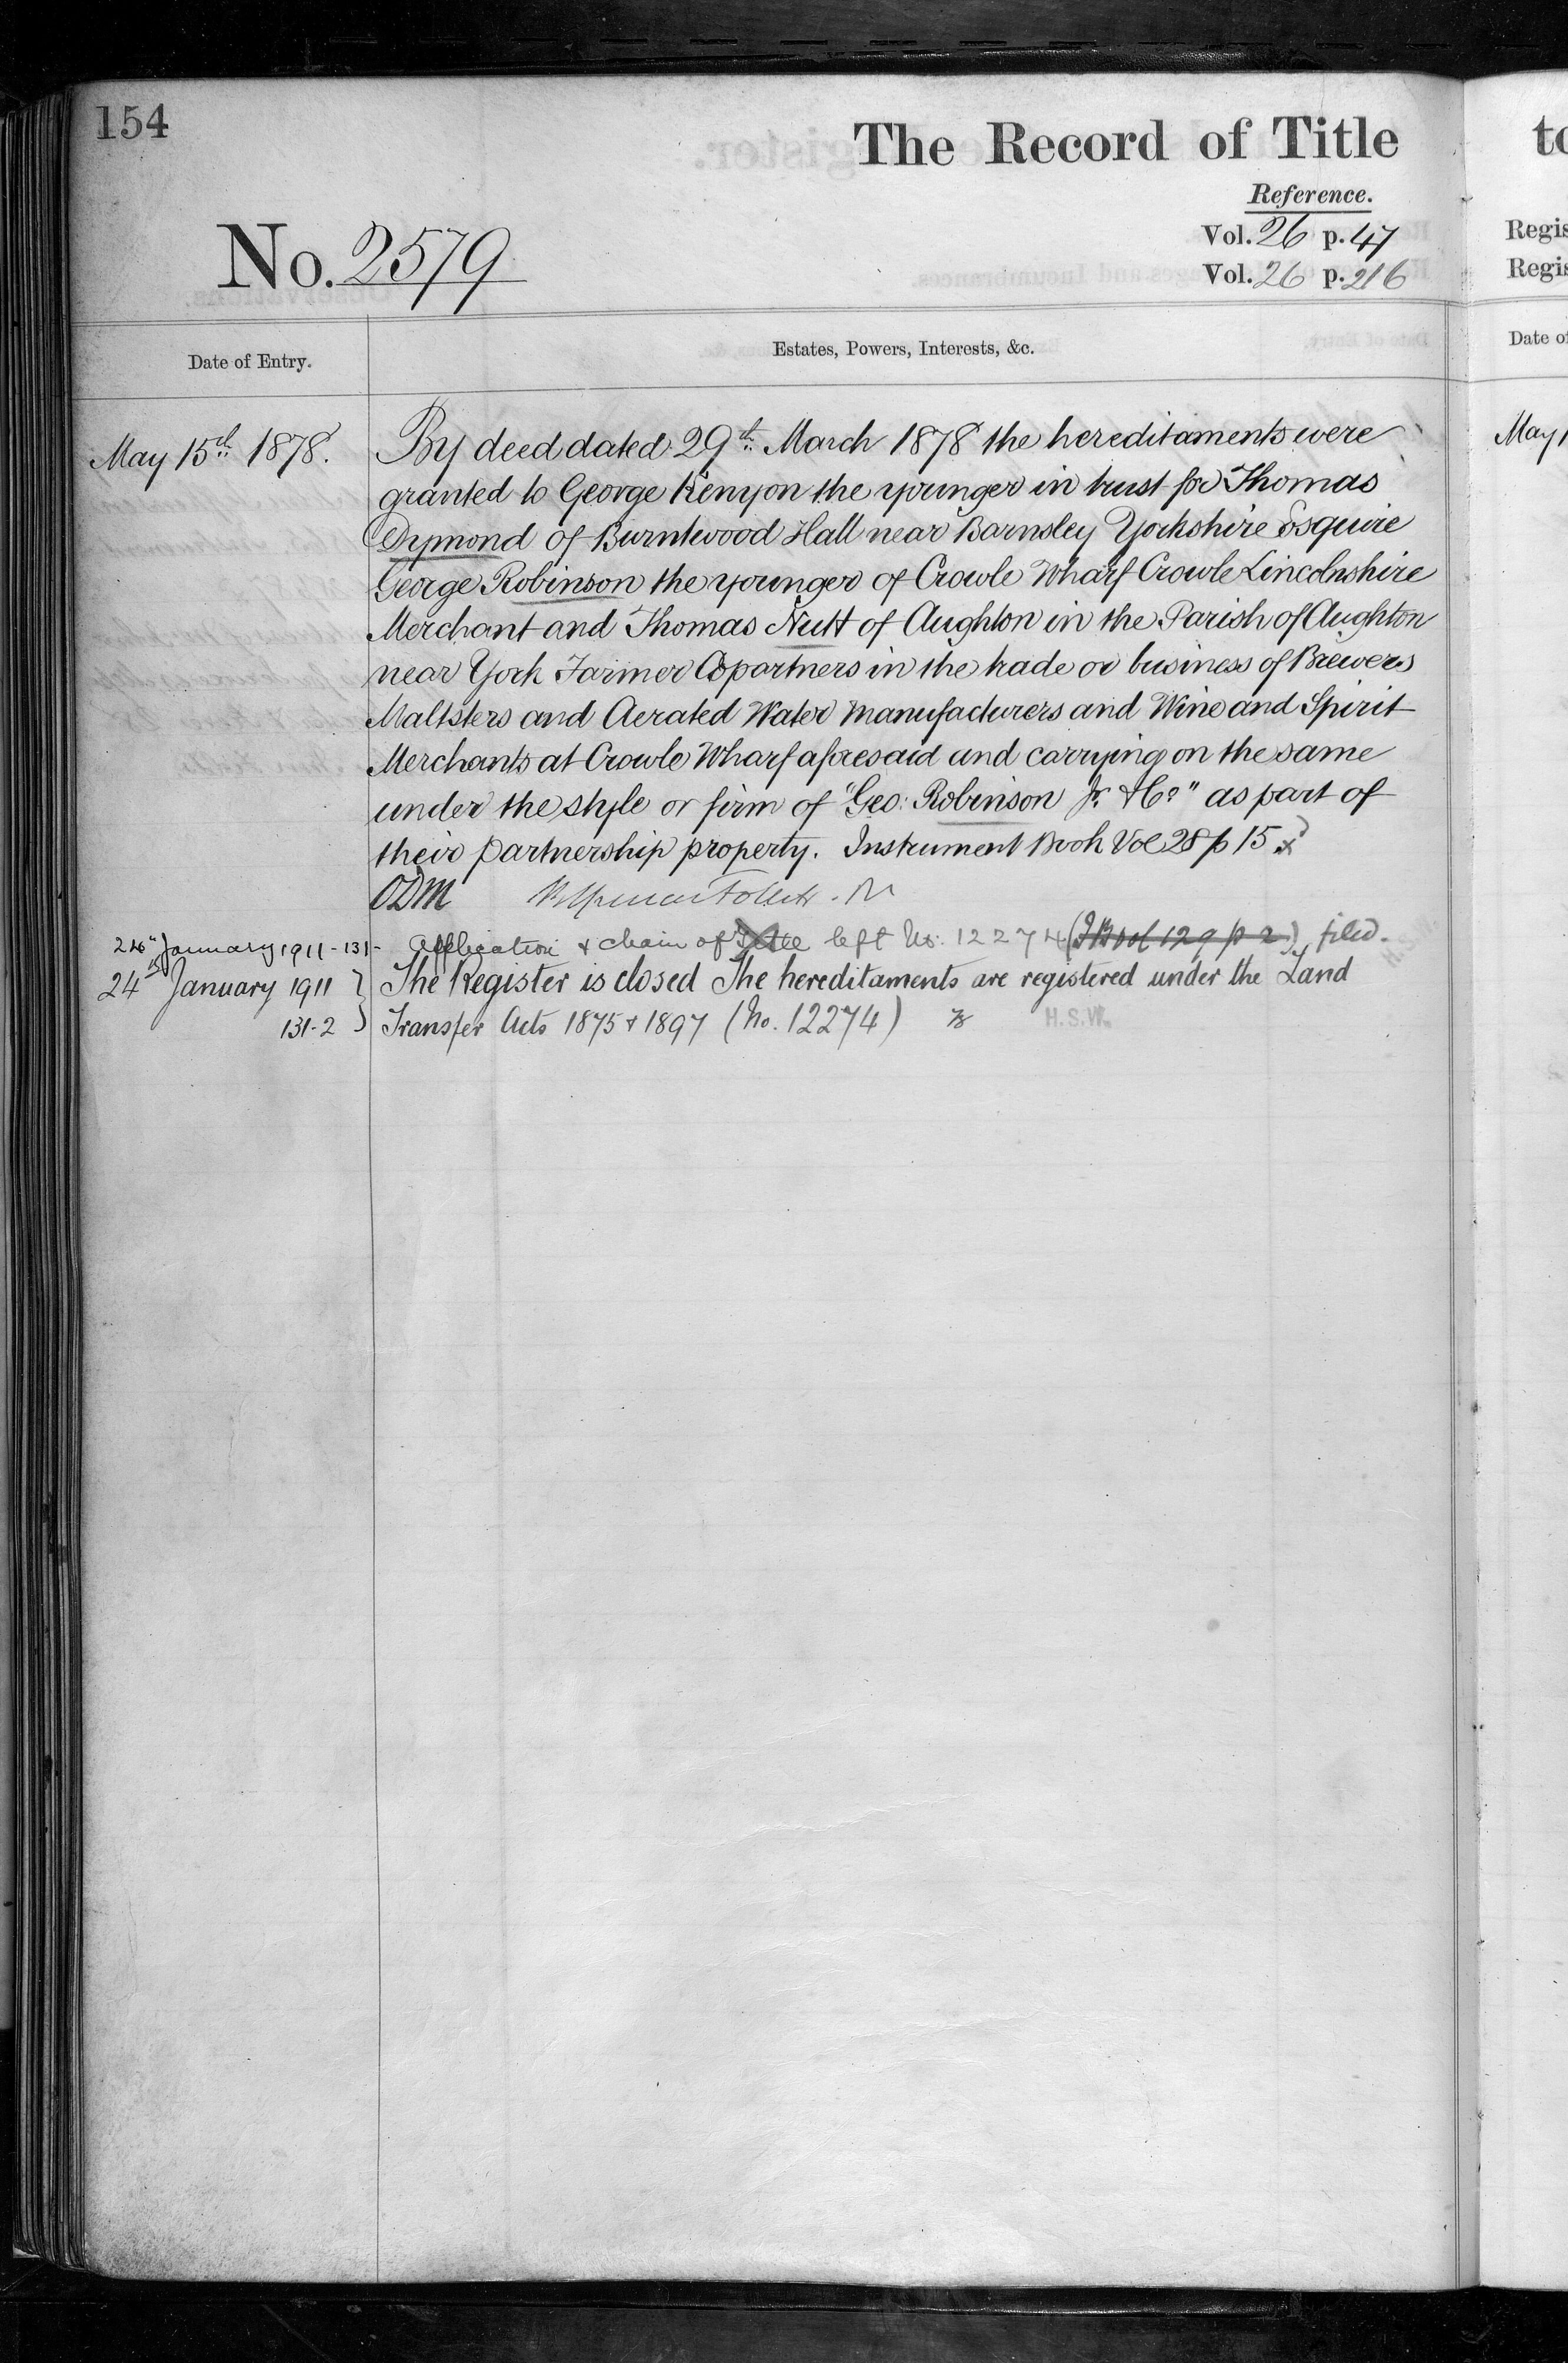 154
The Record of Title
Reference.
No. 2579
Vol. 26 p. 47
Vol. 26 p. 216
Date of Entry.
Estates, Powers, Interests, &c.
May 15th 1878.
By deed dated 29th March 1878 the hereditaments were
granted to George Kenyon the younger in trust for Thomas
Dymond of Burntwood Hall near Barnsley Yorkshire Esquire
George Robinson the younger of Crowle Wharf Crowle Lincolnshire
Merchant and Thomas Nutt of Aughton in the Parish of Aughton
near York Farmer Copartners in the trade or business of Brewers
Maltsters and Aerated Water Manufacturers and Wine and Spirit
Merchants at Crowle Wharf aforesaid and carrying on the same
under the style or firm of "Geo: Robinson Jr. & Co" as part of
their partnership property. Instrument Book Vol 28 p 15
ODM
24th January 1911 - 131- Application & chain of left No. 12274 (I B Vol 129 p 2) filed.
24th January 1911 The Register is closed The hereditaments are registered under the Land
131-2 Transfer Acts 1875 & 1897 (No. 12274) H.S.W.
to
Regis
Regis
Date of
May 1